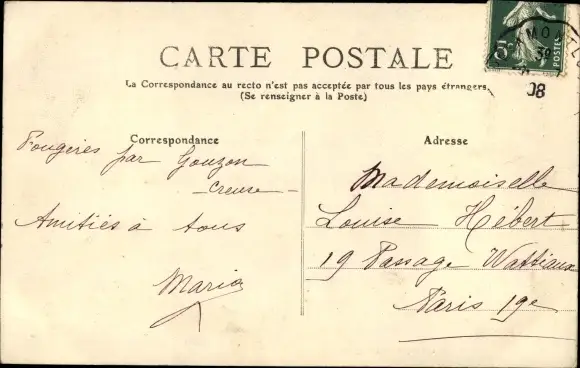 CARTE POSTALE
La Correspondance au recto n'est pas acceptée par tous les pays étrangers
(Se renseigner à la Poste)
5c
POSTES
30
08
Correspondance
Fougères par Gouzon
– Creuse –
Amitiés à tous
Maria
Adresse
Mademoiselle
Louise Hébert
19 Passage Wattiaux
Paris 19e